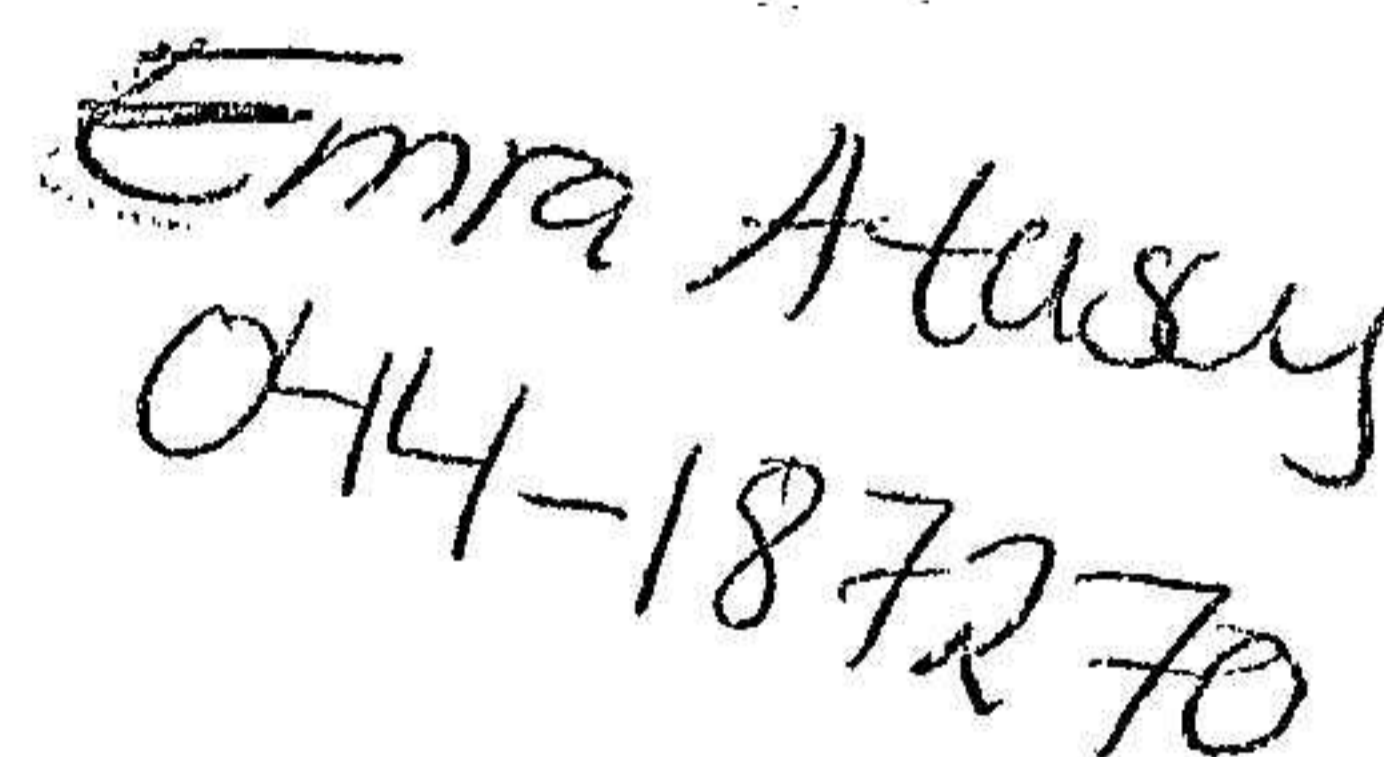 Emra Atasey
044-187270